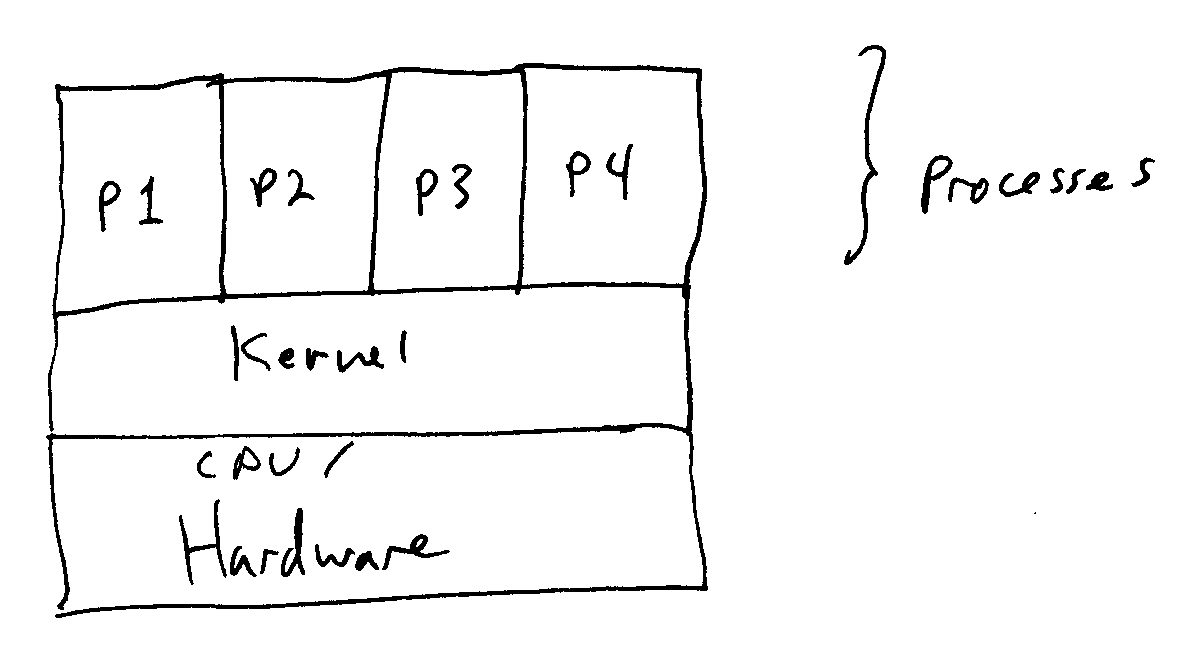 P1 P2 P3 P4
Processes
Kernel
CPU/
Hardware